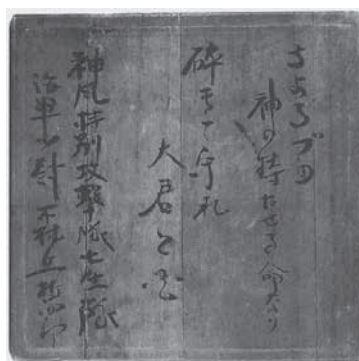 ちよろづの
神の持たせる命なり
砕きて守れ
大君と国
神風特別攻撃隊七生隊
海軍少尉 森丘哲四郎